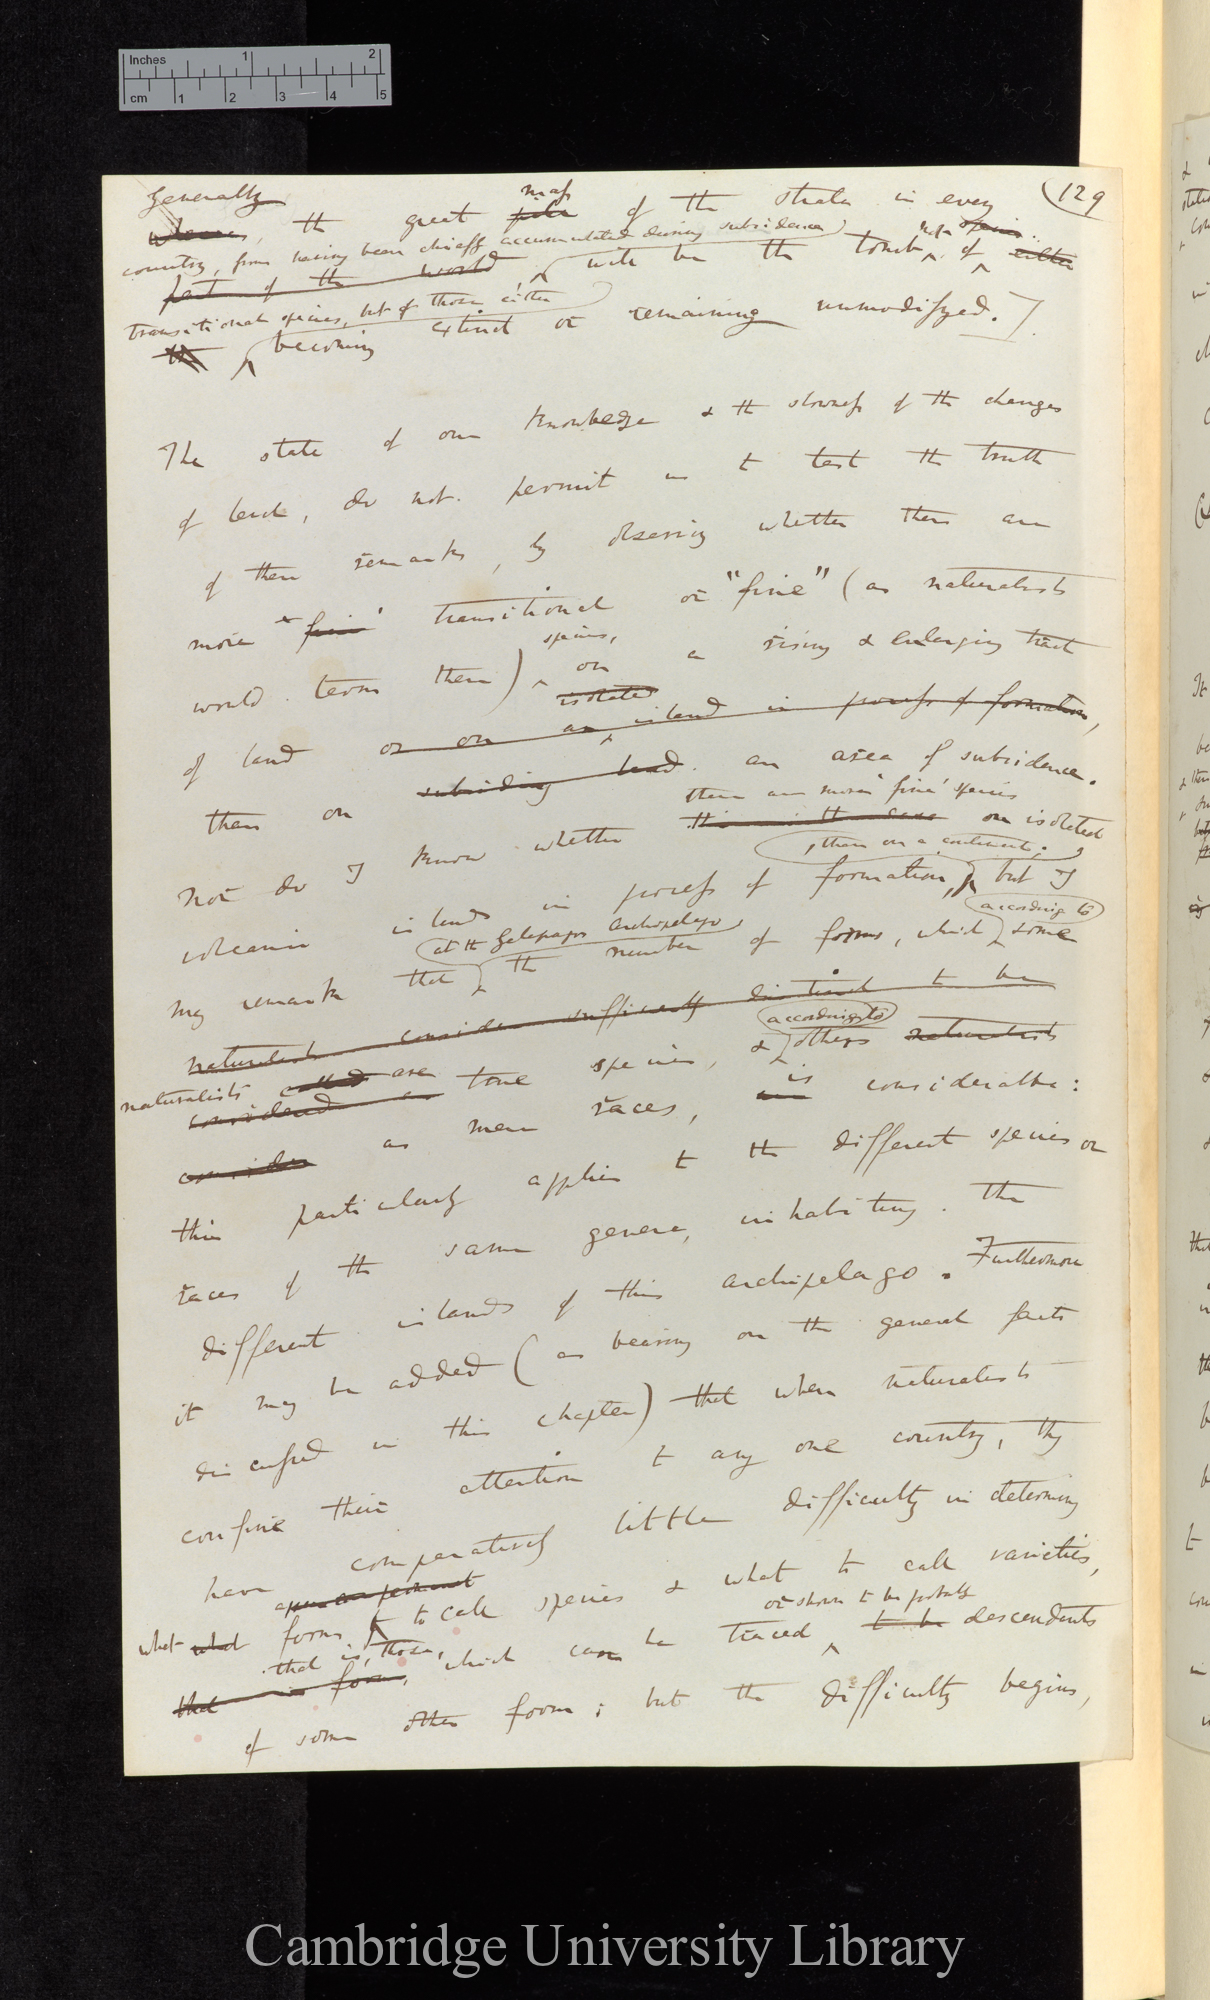 Inches 1 2
cm 1 2 3 4 5
129
generally
mass
whereas, the great pile of the strata in every
country, from having been chiefly accumulated during subsidence not species
part of the world will be the tomb, of either
transitional species, but of those either
the becoming extinct or remaining unmodifyed.]
The state of our knowledge & the slowness of the changes
of level, do not permit us to test the truth
of these remarks, by observing whether there are
more "fine" transitional or "fine" (as naturalists
would term them) species, on a rising & enlarging tract
isolated
of land or on an island in process of formation,
than on subsiding land. an area of subsidence.
there are more 'fine' species
Nor do I know whether this is the case on isolated
, than on a continent;
volcanic islands in process of formation, but I
at the Galapagos Archipelago according to
may remark that the number of forms, which some
naturalists consider sufficiently distinct to be
according to
naturalists called are
considered as true species, & others naturalists
consider as mere races, is considerable:
this particularly applies to the different species or
races of the same genera, inhabiting the
different islands of this archipelago. Furthermore
it may be added (as bearing on the general facts
discussed in this chapter) that when naturalists
confine their attention to any one country, they
have comparatively little difficulty in determing
what what forms to call species & what to call varieties,
that is, those, or shown to be probably
that is forms, which can be traced to be descendants
of some other form; but the difficulty begins,
Cambridge University Library